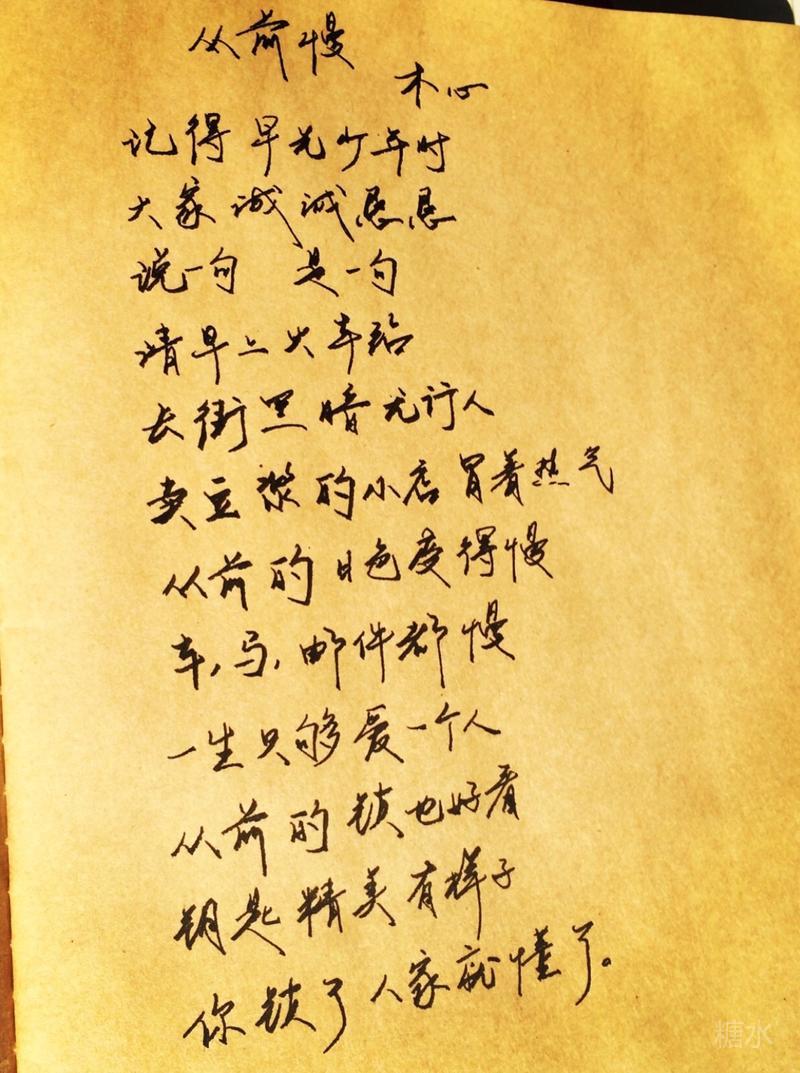 从前慢
木心
记得早先少年时
大家诚诚恳恳
说一句 是一句
清早上火车站
长街黑暗无行人
卖豆浆的小店冒着热气
从前的日色变得慢
车,马,邮件都慢
一生只够爱一个人
从前的锁也好看
钥匙精美有样子
你锁了人家就懂了。
糖水